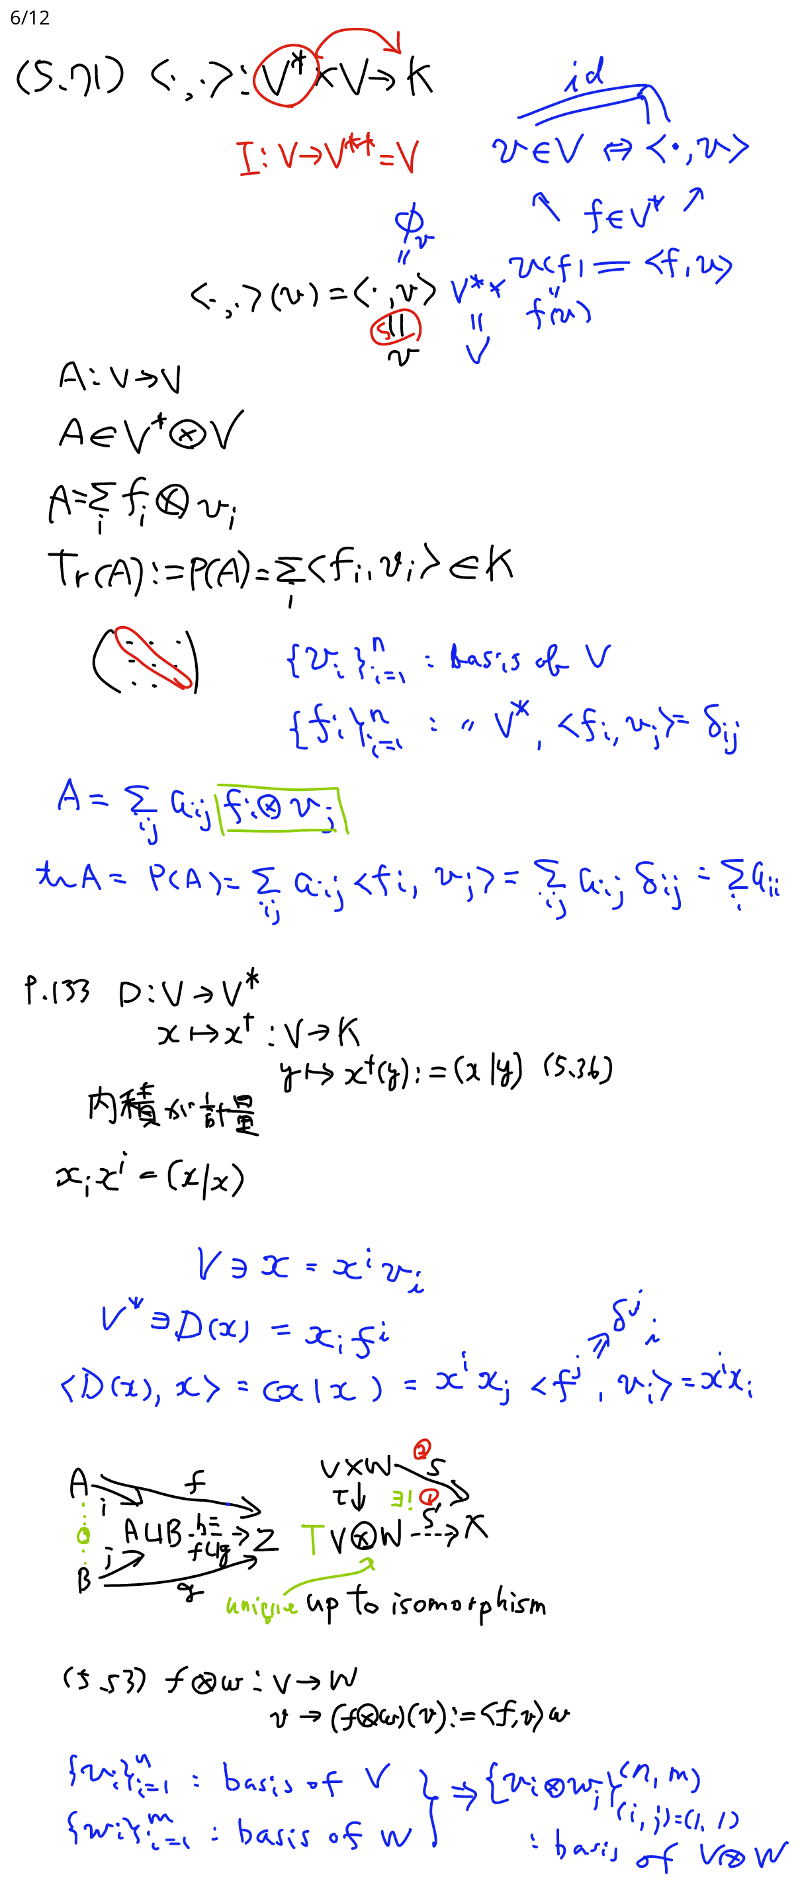 6/12
(5.71) <・,・>: V* × V → K
id
I: V → V** = V
v ∈ V ⇔ <・, v>
f ∈ V*
φ_v
〃
<・,・>(v) = <・, v>
V**
v(f) = <f, v>
〃
f(v)
S||
v
||
V
A: V → V
A ∈ V* ⊗ V
A = Σ_i f_i ⊗ v_i
Tr(A) := P(A) = Σ_i <f_i, v_i> ∈ K
{v_i}_{i=1}^n : basis of V
{f_i}_{i=1}^n : 〃 V*, <f_i, v_j> = δ_ij
A = Σ_ij a_ij f_i ⊗ v_j
tr A = P(A) = Σ_ij a_ij <f_i, v_j> = Σ_ij a_ij δ_ij = Σ_i a_ii
P.133 D: V → V*
x ↦ x† : V → K
y ↦ x†(y) := (x|y) (5.36)
内積が計量
x_i x^i = (x|x)
V ∋ x = x^i v_i
V* ∋ D(x) = x_i f^i
δ^j_i
<D(x), x> = (x|x) = x^i x_j <f^j, v_i> = x^i x_i
A f
i
A⊔B h= f⊔g Z
j
B g
V×W ② S
τ↓ ∃! ①
T V⊗W S' X
unique up to isomorphism
(5.53) f⊗w : V → W
v → (f⊗w)(v) := <f, v> w
{v_i}_{i=1}^n : basis of V
{w_i}_{i=1}^m : basis of W
⇒ {v_i ⊗ w_j}_{(i,j)=(1,1)}^{(n,m)}
: basis of V⊗W